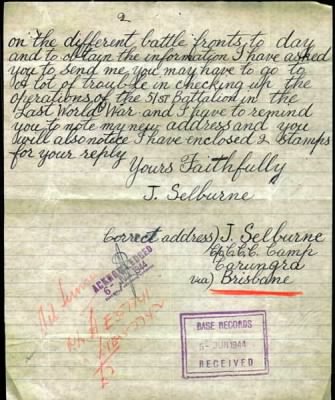 2
on the different battle fronts to day
and to obtain the information I have asked
you to send me, you may have to go to
a lot of trouble in checking up the
operations of the 51st Battalion in the
Last World War and I have to remind
you to note my new address and you
will also notice I have enclosed 2 stamps
for your reply
Yours Faithfully
J. Selburne
Correct address) J. Selburne
C.C.C. Camp
Carungra
via) Brisbane
ACKNOWLEDGED
6- JUN 1944
BASE RECORDS
5- JUN 1944
RECEIVED